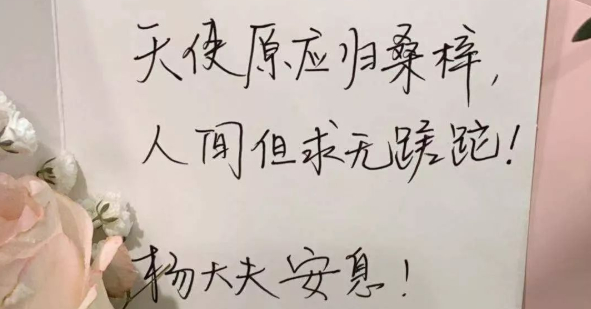 天使原应归桑梓,
人间但求无蹉跎!
杨大夫安息!